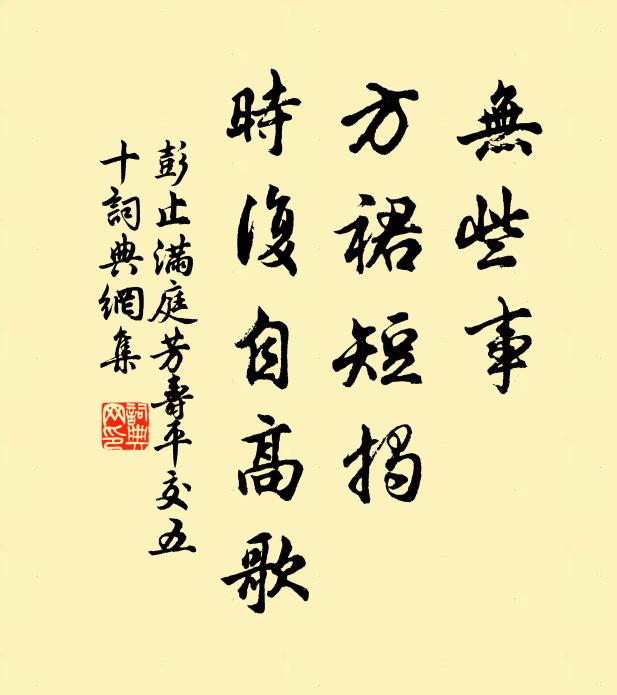 無些事
方裙短揭
時復自高歌
彭止滿庭芳壽平交五
十詞典網集
詞典网印